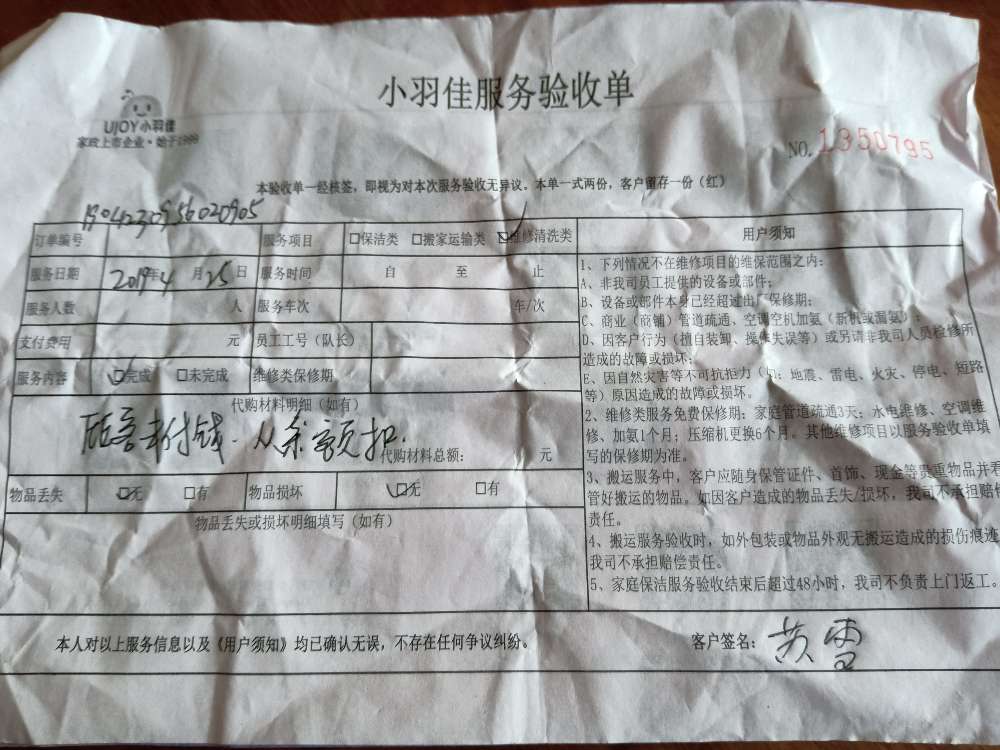 小羽佳服务验收单
UJOY小羽佳
家政上市企业·始于1999
NO.1350795
本验收单一经核签，即视为对本次服务验收无异议。本单一式两份，客户留存一份（红）
订单编号 服务项目 □保洁类 □搬家运输类 ☑维修清洗类
服务日期 2019年4月25日 服务时间 自 至 止
服务人数 人 服务车次 车/次
支付费用 元 员工工号（队长）
服务内容 ☑完成 □未完成 维修类保修期
代购材料明细（如有）
顾客未付钱.从余额扣.
代购材料总额： 元
物品丢失 ☑无 □有 物品损坏 ☑无 □有
物品丢失或损坏明细填写（如有）
用户须知
1、下列情况不在维修项目的维保范围之内：
A、非我司员工提供的设备或部件；
B、设备或部件本身已经超过出厂保修期；
C、商业（商铺）管道疏通、空调空机加氨（新机或漏氨）；
D、因客户行为（擅自装卸、操作失误等）或另请非我司人员检修所
造成的故障或损坏；
E、因自然灾害等不可抗拒力（如：地震、雷电、火灾、停电、短路
等）原因造成的故障或损坏。
2、维修类服务免费保修期：家庭管道疏通3天；水电维修、空调维
修、加氨1个月；压缩机更换6个月。其他维修项目以服务验收单填
写的保修期为准。
3、搬运服务中，客户应随身保管证件、首饰、现金等贵重物品并看
管好搬运的物品。如因客户造成的物品丢失/损坏，我司不承担赔偿
责任。
4、搬运服务验收时，如外包装或物品外观无搬运造成的损伤痕迹
我司不承担赔偿责任。
5、家庭保洁服务验收结束后超过48小时，我司不负责上门返工。
本人对以上服务信息以及《用户须知》均已确认无误，不存在任何争议纠纷。
客户签名：黄雪